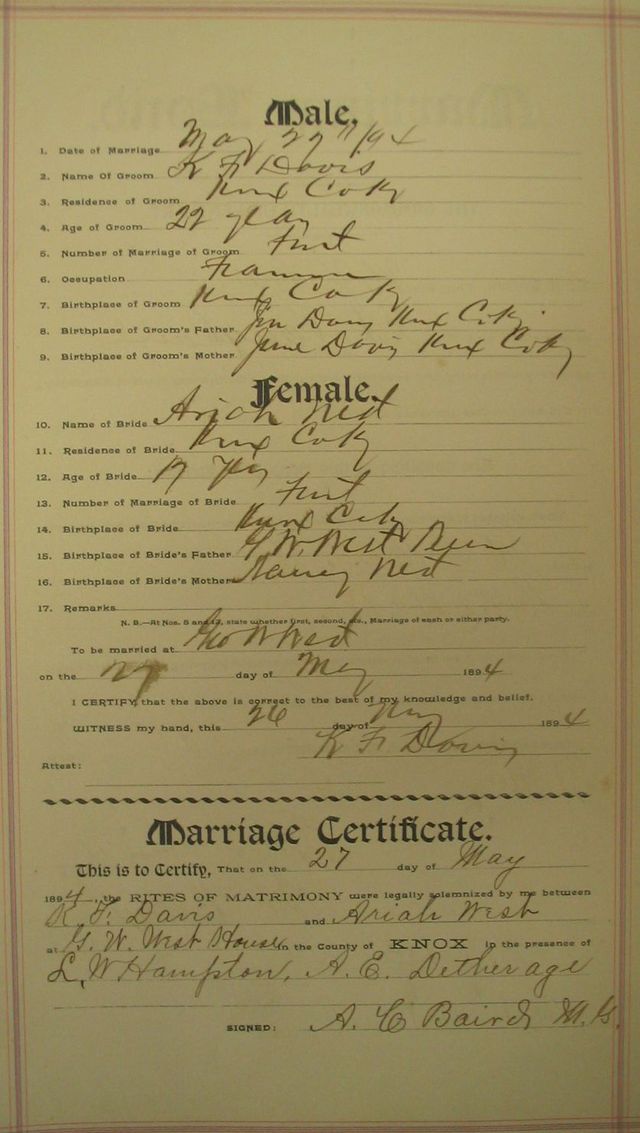 Male,
1. Date of Marriage May 27th/94
2. Name Of Groom K F Davis
3. Residence of Groom Knx Co Ky
4. Age of Groom 22 years
5. Number of Marriage of Groom First
6. Occupation Farmer
7. Birthplace of Groom Knx Co Ky
8. Birthplace of Groom's Father Davis Knx Co Ky
9. Birthplace of Groom's Mother Jane Davis Knx Co Ky
Female.
10. Name of Bride Ariah West
11. Residence of Bride Knx Co Ky
12. Age of Bride 17 yrs
13. Number of Marriage of Bride First
14. Birthplace of Bride Knox Co Ky
15. Birthplace of Bride's Father G W. West Tenn
16. Birthplace of Bride's Mother Nancy West
17. Remarks
N. B.—At Nos. 5 and 13, state whether first, second, etc., Marriage of each or either party.
To be married at Geo W West
on the 27 day of May 1894
I CERTIFY, that the above is correct to the best of my knowledge and belief.
WITNESS my hand, this 26 day of May 1894
K F Davis
Attest:
Marriage Certificate.
This is to Certify, That on the 27 day of May
1894, the RITES OF MATRIMONY were legally solemnized by me between
K. F. Davis and Ariah West
at G. W. West House in the County of KNOX in the presence of
L. W Hampton, A. E. Detherage
SIGNED: A. C Baird M. G.